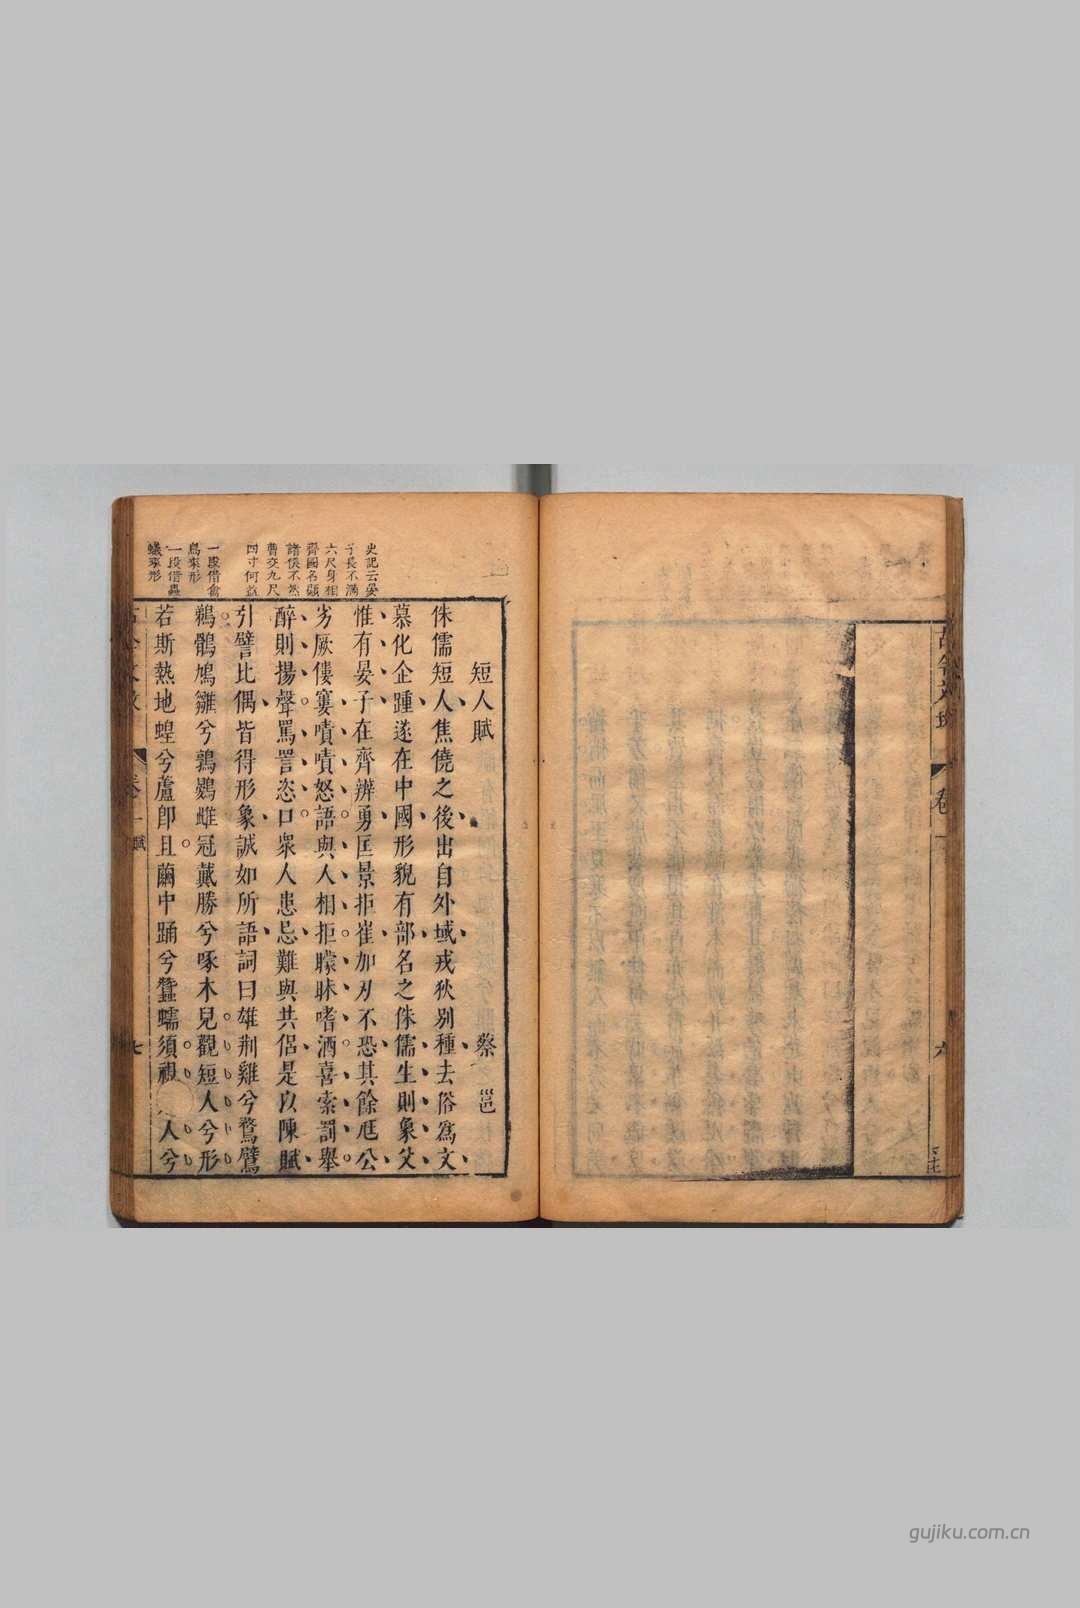 卷
六
史記云晏
子長不滿
六尺身相
齊國名顯
諸侯不然
曹交九尺
四寸何益
一段借禽
鳥來形
一段借蟲
蟻來形
短人賦
蔡邕
侏儒短人焦僥之後出自外域戎狄別種去俗爲文
慕化企踵遂在中國形貌有部名之侏儒生則象父
惟有晏子在齊辨勇匡景拒崔加刃不恐其餘尫公
劣厥僂寠嘖嘖怒語與人相拒矇昧嗜酒喜索罰舉
醉則揚聲罵詈恣口衆人患忌難與共侶是以陳賦
引譬比偶皆得形象誠如所語詞曰雄荆雞兮鶩鷿
鵜鶻鳩雛兮鶉鷃雌冠戴勝兮啄木兒觀短人兮形
若斯熱地蝗兮蘆卽且繭中踊兮蠶蠕須視 人兮
卷一 賦
七
gujiku.com.cn